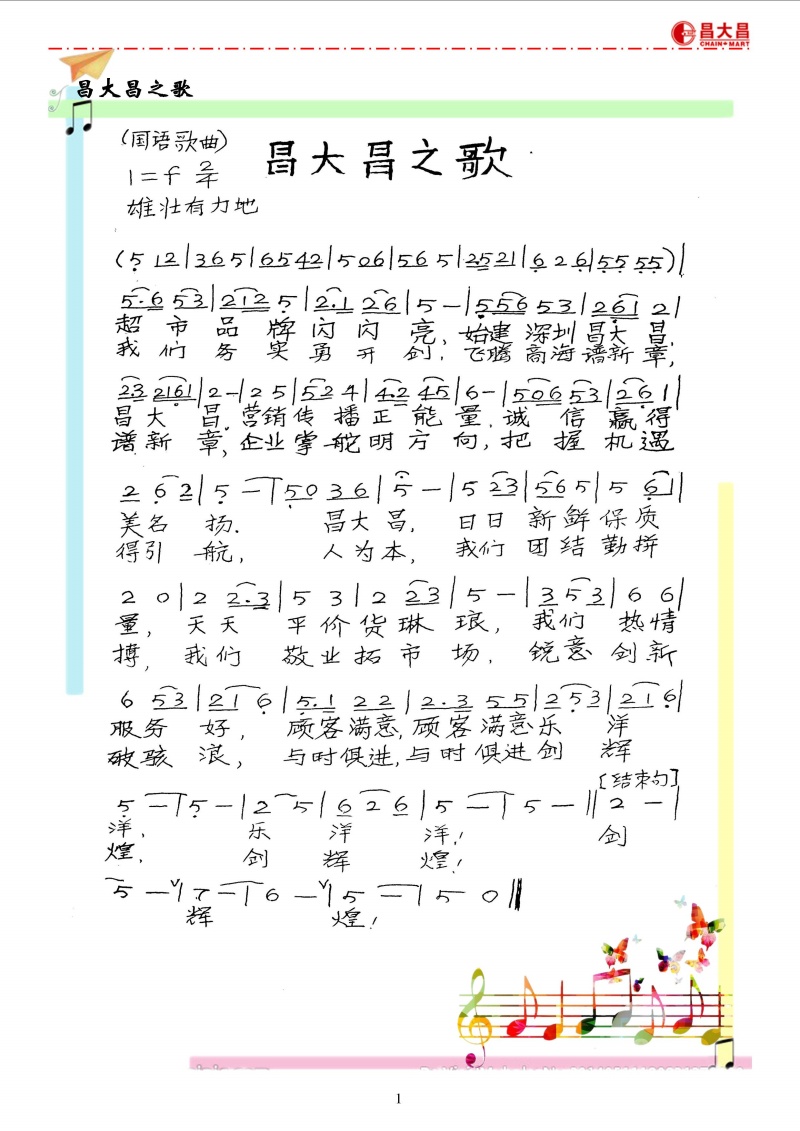 昌大昌
CHAIN★MART
昌大昌之歌
(国语歌曲)
昌大昌之歌
1=f 2/4
雄壮有力地
(5 12|365|6542|506|565|2521|626|55 55)|
5·6 53|212 5|2·1 26|5 -|556 53|261 2|
超市品牌闪闪亮,始建深圳昌大昌,
我们务实勇开创,飞腾高海谱新章,
23 2161|2-|25|524|4·2 45|6-|506 53|261|
昌大昌.营销传播正能量,诚信赢得
谱新章,企业掌舵明方向,把握机遇
2 62|5 -|5036|5 -|5 23|565|5 61|
美名扬. 昌大昌,日日新鲜保质
得引航, 人为本,我们团结勤拼
2 0|2 2·3|5 3|2 23|5 -|353|66
量,天天平价货琳琅,我们热情
搏,我们敬业拓市场,锐意创新
6 53|216|5·1 22|2·3 55|253|216|
服务好,顾客满意,顾客满意乐洋
破骇浪,与时俱进,与时俱进创辉
[结束句]
5 -|5 -|2 5|626|5 -|5 -‖2 -|
洋, 乐洋洋! 创
煌, 创辉煌!
5 -|7 -|6 -|5 -|5 0‖
辉煌!
1